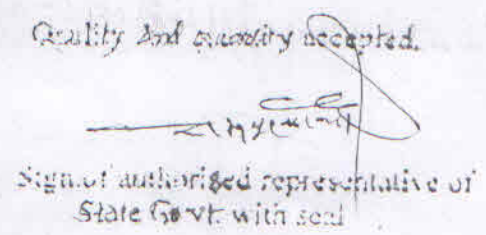 Quality And quantity accepted.
Sign of authorised representative of
State Govt. with seal